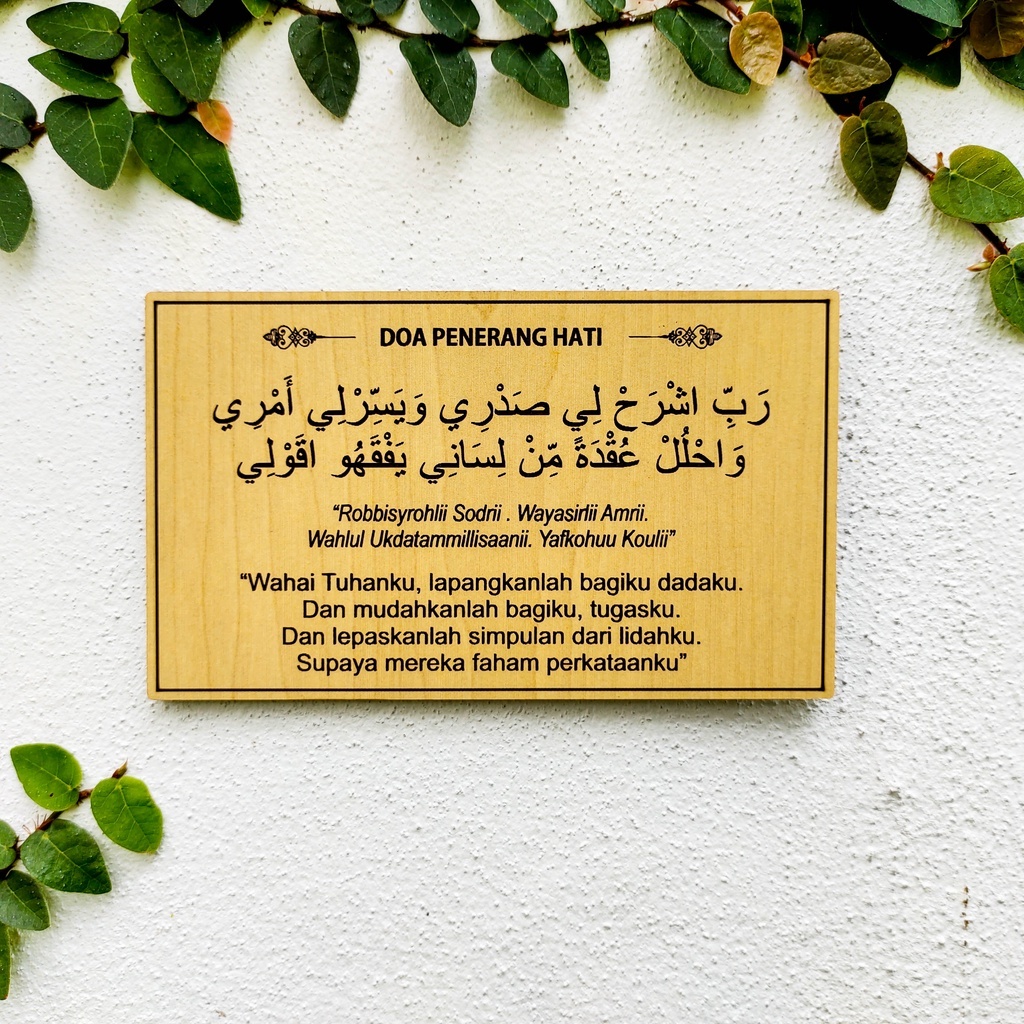 DOA PENERANG HATI
رَبِّ اشْرَحْ لِي صَدْرِي وَيَسِّرْلِي أَمْرِي
وَاحْلُلْ عُقْدَةً مِّنْ لِسَانِي يَفْقَهُو اقَوْلِي
“Robbisyrohlii Sodrii . Wayasirlii Amrii.
Wahlul Ukdatammillisaanii. Yafkohuu Koulii”
“Wahai Tuhanku, lapangkanlah bagiku dadaku.
Dan mudahkanlah bagiku, tugasku.
Dan lepaskanlah simpulan dari lidahku.
Supaya mereka faham perkataanku”